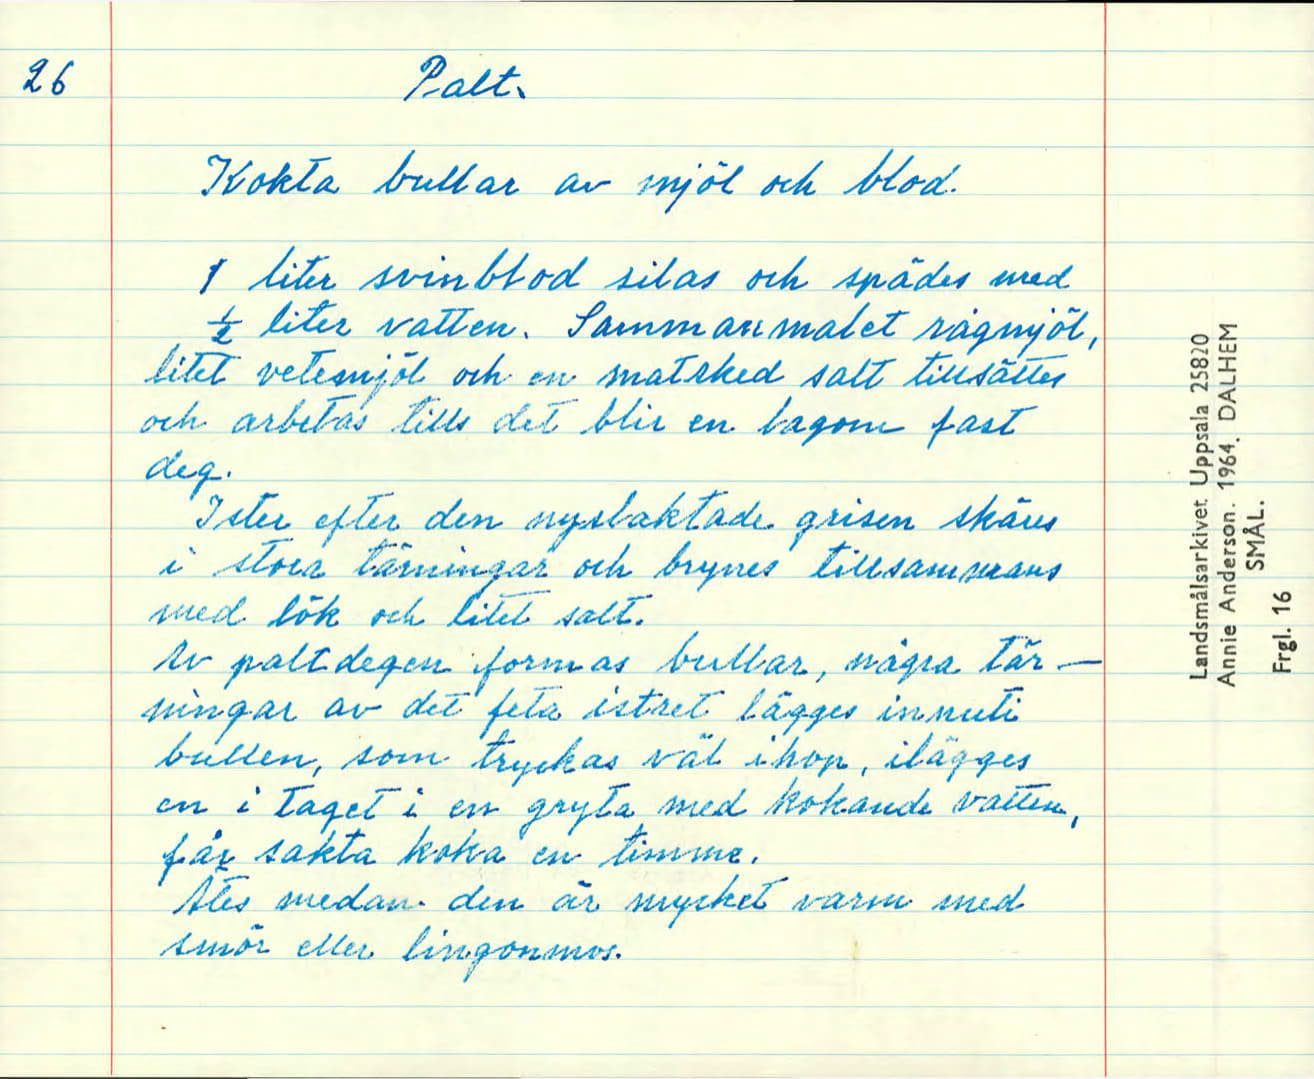 26
Palt.
Kokta bullar av mjöl och blod.
1 liter svinblod silas och spädes med
½ liter vatten. Sammanmalet rågmjöl,
litet vetemjöl och en matsked salt tillsättes
och arbetas tills det blir en lagom fast
deg.
Ister efter den nyslaktade grisen skäres
i stora tärningar och brynes tillsammans
med lök och litet salt.
Av paltdegen formas bullar, några tär-
ningar av det feta istret lägges innuti
bullen, som tryckas väl ihop, ilägges
en i taget i en gryta med kokande vatten,
får sakta koka en timme.
Ätes medan den är mycket varm med
smör eller lingonmos.
Landsmålsarkivet Uppsala 25820
Annie Anderson. 1964. DALHEM
SMÅL.
Frgl. 16